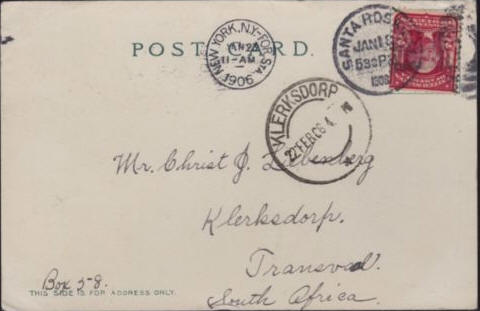 POST CARD.
NEW YORK, N.Y. FOR. STA
JAN 23
11-AM
1906
SANTA ROSA
JAN 18
530P
1906
KLERKSDORP
22 FEB 06
Mr. Christ J. Liebenberg
Klerksdorp.
Transvaal.
South Africa.
Box 58.
THIS SIDE IS FOR ADDRESS ONLY.